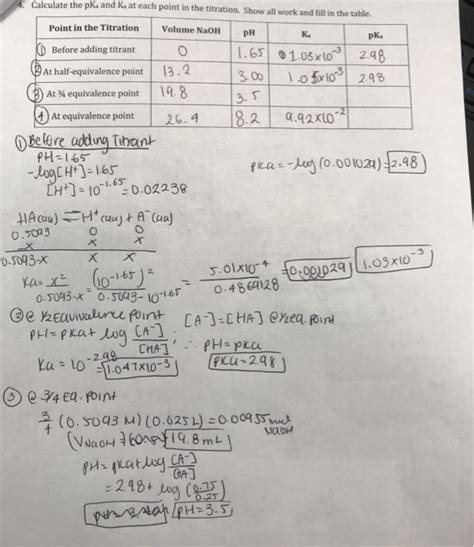 4. Calculate the pKa and Ka at each point in the titration. Show all work and fill in the table.
Point in the Titration Volume NaOH pH Ka pKa
① Before adding titrant 0 1.65 1.03x10⁻³ 2.98
② At half-equivalence point 13.2 3.00 1.05x10⁻³ 298
③ At ¾ equivalence point 19.8 3.5
④ At equivalence point 26.4 8.2 9.92x10⁻²
① Before adding Titrant
pH=1.65
-log[H⁺]=1.65
[H⁺]=10⁻¹·⁶⁵=0.02238
pKa=-log(0.001029)=2.98
HA(aq) ⇌ H⁺(aq) + A⁻(aq)
0.5093 0 0
-x x x
0.5093-x x x
Ka= x²/0.5093-x = (10⁻¹·⁶⁵)²/0.5093-10⁻¹·⁶⁵ = 5.01x10⁻⁴/0.4869128 =0.001029 1.03x10⁻³
② @ ½Equivalence Point [A⁻]=[HA] @½eq.point
pH=pKa+ log [A⁻]/[HA] ; ∴ pH=pKa
Ka = 10⁻²·⁹⁸ =1.047x10⁻³ pKa=2.98
③ @ 3/4 EQ. POINT
3/4 (0.5093 M)(0.025L)=0.00955mol NaOH
19.8mL
pH=pKa+log [A⁻]/[HA]
=298+ log (0.75/0.25)
pH=3.5